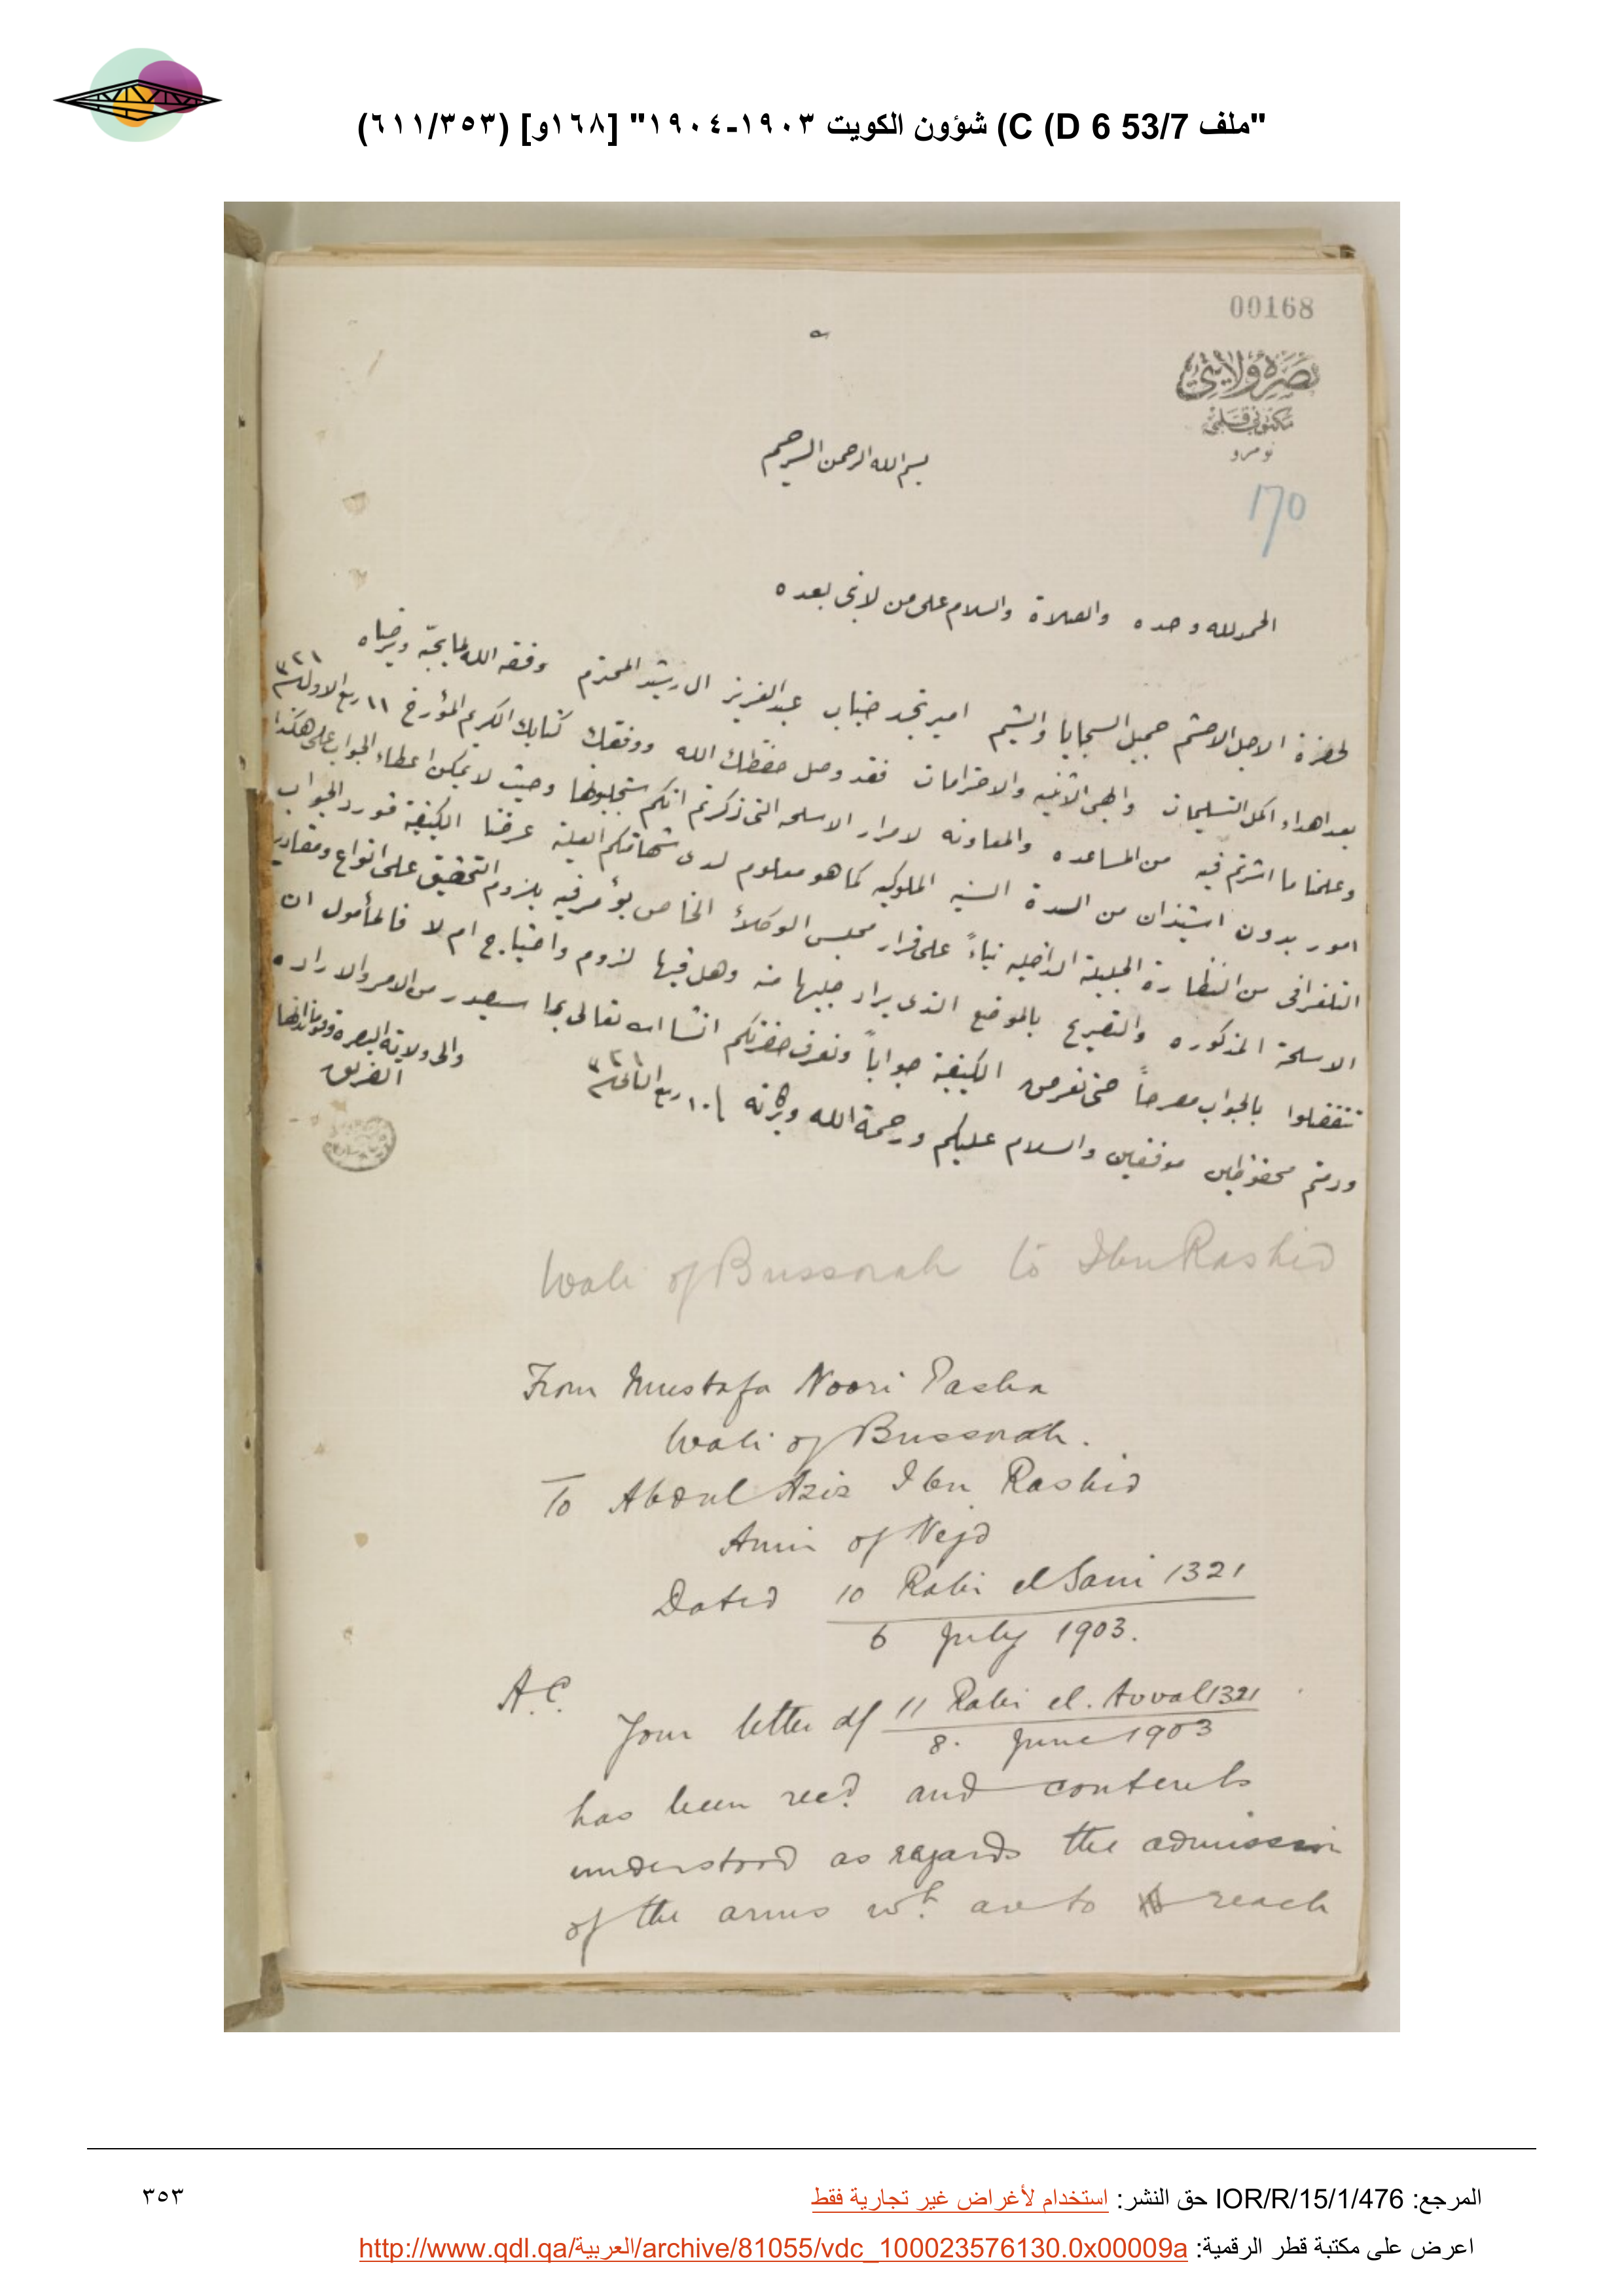 "ملف 53/7 C (D 6) شؤون الكويت ١٩٠٣-١٩٠٤" [١٦٨و] (٦١١/٣٥٣)
00168
بصره ولايتى
مكتوبى قلمى
نومرو
170
بسم الله الرحمن الرحيم
الحمد لله وحده والصلاة والسلام على من لا نبى بعده
لحضرة الاجل الاحشم جميل السجايا والشيم امير نجد جناب عبد العزيز ال رشيد المحترم وفقه الله لما يحبّه ويرضاه
بعد اهداء اكمل التسليمات وابهى الاثنيه والاحترامات فقد وصل حفظك الله ووفقك كتابك الكريم المؤرخ ١١ ربيع الاول سنه ٣٢١
وعلمنا ما اشرتم فيه من المساعده والمعاونه لامرار الاسلحه التى ذكرتم انكم ستجلبونها وحيث لا يمكن اعطاء الجواب على هكذا
امور بدون استيذان من السدة السنيه الملوكيه كما هو معلوم لدى شهامتكم العليه عرضنا الكيفية فورد الجواب
التلغرافى من النظارة الجليلة الداخليه بناءً على قرار مجلس الوكلاء الخاص يؤمر فيه بلزوم التحقيق على انواع ومقادير
الاسلحة المذكوره والتصريح بالموضع الذى يراد جلبها منه وهل فيها لزوم واحتياج ام لا فالمأمول ان
تتفضلوا بالجواب معرضاً حتى نعرض الكيفية جواباً ونعرف حضرتكم انشا الله تعالى بما سيصدر من الامر والاراده
ودمتم محفوظين موفقين والسلام عليكم ورحمة الله وبركاته ١٠ ربيع الثانى سنه ٣٢١
والى ولاية البصره وقوماندانها
الفريق
Wali of Bussorah to Ibn Rashid
From Mustafa Noori Pasha
Wali of Bussorah.
To Abdul Aziz Ibn Rashid
Amir of Nejd
Dated 10 Rabi el Sani 1321
6 July 1903.
A.C.
Your letter of 11 Rabi el. Avval 1321
8. June 1903
has been recd. and contents
understood as regards the admission
of the arms wh. are to reach
المرجع: IOR/R/15/1/476 حق النشر: استخدام لأغراض غير تجارية فقط
٣٥٣
اعرض على مكتبة قطر الرقمية: http://www.qdl.qa/العربية/archive/81055/vdc_100023576130.0x00009a